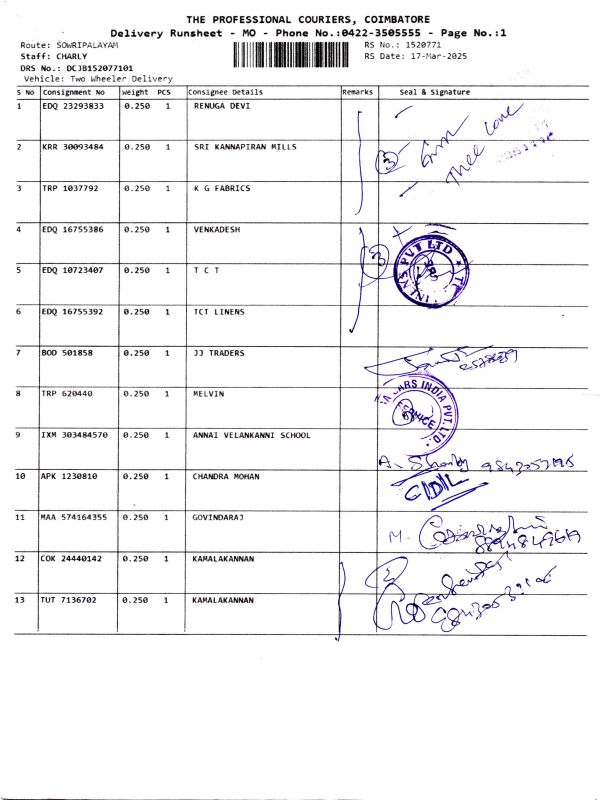 THE PROFESSIONAL COURIERS, COIMBATORE
Delivery Runsheet - MO - Phone No.:0422-3505555 - Page No.:1
Route: SOWRIPALAYAM RS No.: 1520771
Staff: CHARLY RS Date: 17-Mar-2025
DRS No.: DCJB152077101
Vehicle: Two Wheeler Delivery
S No Consignment No Weight PCS Consignee Details Remarks Seal & Signature
1 EDQ 23293833 0.250 1 RENUGA DEVI
2 KRR 30093484 0.250 1 SRI KANNAPIRAN MILLS 3
3 TRP 1037792 0.250 1 K G FABRICS
4 EDQ 16755386 0.250 1 VENKADESH
5 EDQ 10723407 0.250 1 T C T 3
6 EDQ 16755392 0.250 1 TCT LINENS
7 BOD 501858 0.250 1 JJ TRADERS
8 TRP 620440 0.250 1 MELVIN
CARS INDIA PVT. LTD.
SERVICE
9 IXM 303484570 0.250 1 ANNAI VELANKANNI SCHOOL
10 APK 1230810 0.250 1 CHANDRA MOHAN
11 MAA 574164355 0.250 1 GOVINDARAJ M.
12 COK 24440142 0.250 1 KAMALAKANNAN 2
13 TUT 7136702 0.250 1 KAMALAKANNAN